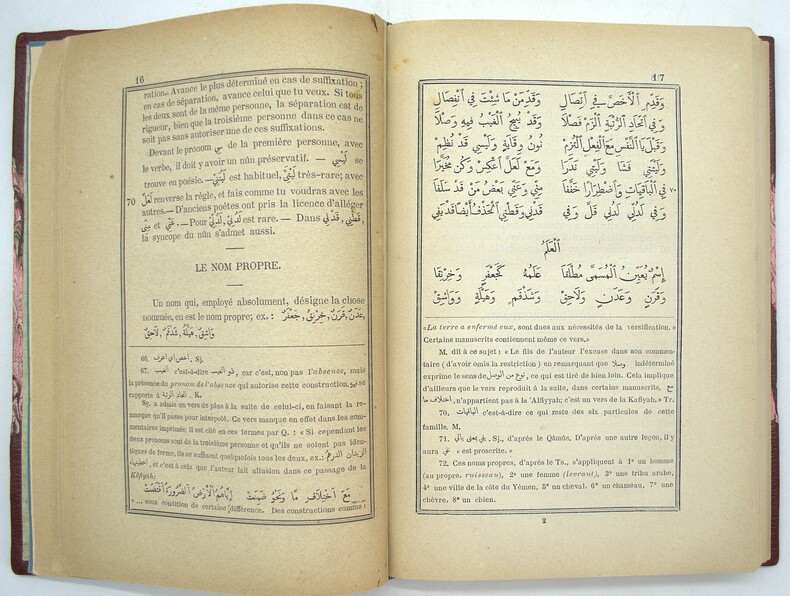 16
ration.. Avance le plus déterminé en cas de suffixation ;
en cas de séparation, avance celui que tu veux. Si tous
les deux sont de la même personne, la séparation est de
rigueur, bien que la troisième personne dans ce cas ne
soit pas sans autoriser une de ces suffixations.
Devant le pronom ي de la première personne, avec
le verbe, il doit y avoir un nûn préservatif. — لَيْسِي se
trouve en poésie. — لَيْتَنِي est habituel, لَيْتِي très-rare; avec
70 لَعَلَّ renverse la règle, et fais comme tu voudras avec les
autres. — D'anciens poètes ont pris la licence d'alléger
مِنِّي et عَنِّي. — Pour لَدُنِّي, لَدُنِي est rare. — Dans قَدْنِي, قَطْنِي,
la syncope du nûn s'admet aussi.
LE NOM PROPRE.
Un nom qui, employé absolument, désigne la chose
nommée, en est le nom propre; ex.: جَعْفَرُ, خِرْنِقُ, قَرَنُ, عَدَنُ,
لَاحِقُ, شَذْقَمُ, هَيْلَةُ, وَاشِقُ
66. أخصّ اى أعرف. Sj.
67. الغيب c'est-à-dire ذو الغيب, car c'est, non pas l'absence, mais
la présence du pronom de l'absence qui autorise cette construction. فيه se
rapporte à اتحاد الرتبة. K.
Sy. a admis un vers de plus à la suite de celui-ci, en faisant la re-
marque qu'il passe pour interpolé. Ce vers manque en effet dans les com-
mentaires imprimés; il est cité en ces termes par Q. : « Si cependant les
deux pronoms sont de la troisième personne et qu'ils ne soient pas iden-
tiques de forme, ils se suffixent quelquefois tous les deux, ex.: الزيدان الدرهم
اعطيتهماه, et c'est à cela que l'auteur fait allusion dans ce passage de la
Kâfiyah:
مَعَ اخْتِلَافِ مَا وَنَحْوُ ضَمِنَتْ إِيَّاهُمُ الْأَرْضُ الضَّرُورَةُ اقْتَضَتْ
« ... sous condition de certaine différence. Des constructions comme :
17
وَقَدِّمِ الْأَخَصَّ فِي اتِّصَالِ وَقَدِّمَنْ مَا شِئْتَ فِي انْفِصَالِ
وَفِي اتِّحَادِ الرُّتْبَةِ الْزَمْ فَصْلَا وَقَدْ يُبِيحُ الْغَيْبُ فِيهِ وَصْلَا
وَقَبْلَ يَا النَّفْسِ مَعَ الْفِعْلِ الْتُزِمْ نُونُ وِقَايَةٍ وَلَيْسِي قَدْ نُظِمْ
وَلَيْتَنِي فَشَا وَلَيْتِي نَدَرَا وَمَعْ لَعَلَّ اعْكِسْ وَكُنْ مُخَيَّرَا
٧٠ فِي الْبَاقِيَاتِ وَاضْطِرَارًا خَفَّفَا مِنِّي وَعَنِّي بَعْضُ مَنْ قَدْ سَلَفَا
وَفِي لَدُنِّي لَدُنِي قَلَّ وَفِي قَدْنِي وَقَطْنِي الْحَذْفُ أَيْضًا قَدْ يَفِي
اَلْعَلَمُ
إِسْمٌ يُعَيِّنُ الْمُسَمَّى مُطْلَقَا عَلَمُهُ كَجَعْفَرٍ وَخِرْنِقَا
وَقَرَنٍ وَعَدَنٍ وَلَاحِقِ وَشَذْقَمٍ وَهَيْلَةٍ وَوَاشِقِ
«La terre a enfermé eux, sont dues aux nécessités de la versification. »
Certains manuscrits contiennent même ce vers.»
M. dit à ce sujet : « Le fils de l'auteur l'excuse dans son commen-
taire ( d'avoir omis la restriction ) en remarquant que وصلا indéterminé
exprime le sens de نوع من الوصل, ce qui est tiré de bien loin. Cela implique
d'ailleurs que le vers reproduit à la suite, dans certains manuscrits, مع
اختلاف ما, n'appartient pas à la 'Alfiyah; c'est un vers de la Kafiyah. » Tr.
70. الباقيات c'est-à-dire ce qui reste des six particules de cette
famille. M.
71. يفى بمعنى ياتى. Sj., d'après le Qâmûs, D'après une autre leçon, il y
aura نفى « est proscrite. »
72. Ces noms propres, d'après le Ts., s'appliquent à 1° un homme
(au propre. ruisseau), 2° une femme (levraut), 3° une tribu arabe,
4° une ville de la côte du Yémen, 5° un cheval. 6° un chameau, 7° une
chèvre. 8° un chien.
2